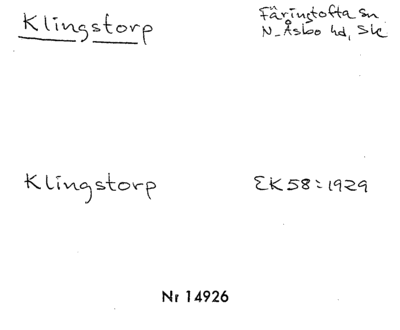 Klingstorp
Färingtofta sn
N. Åsbo hd, Sk
Klingstorp
EK58:1929
Nr 14926